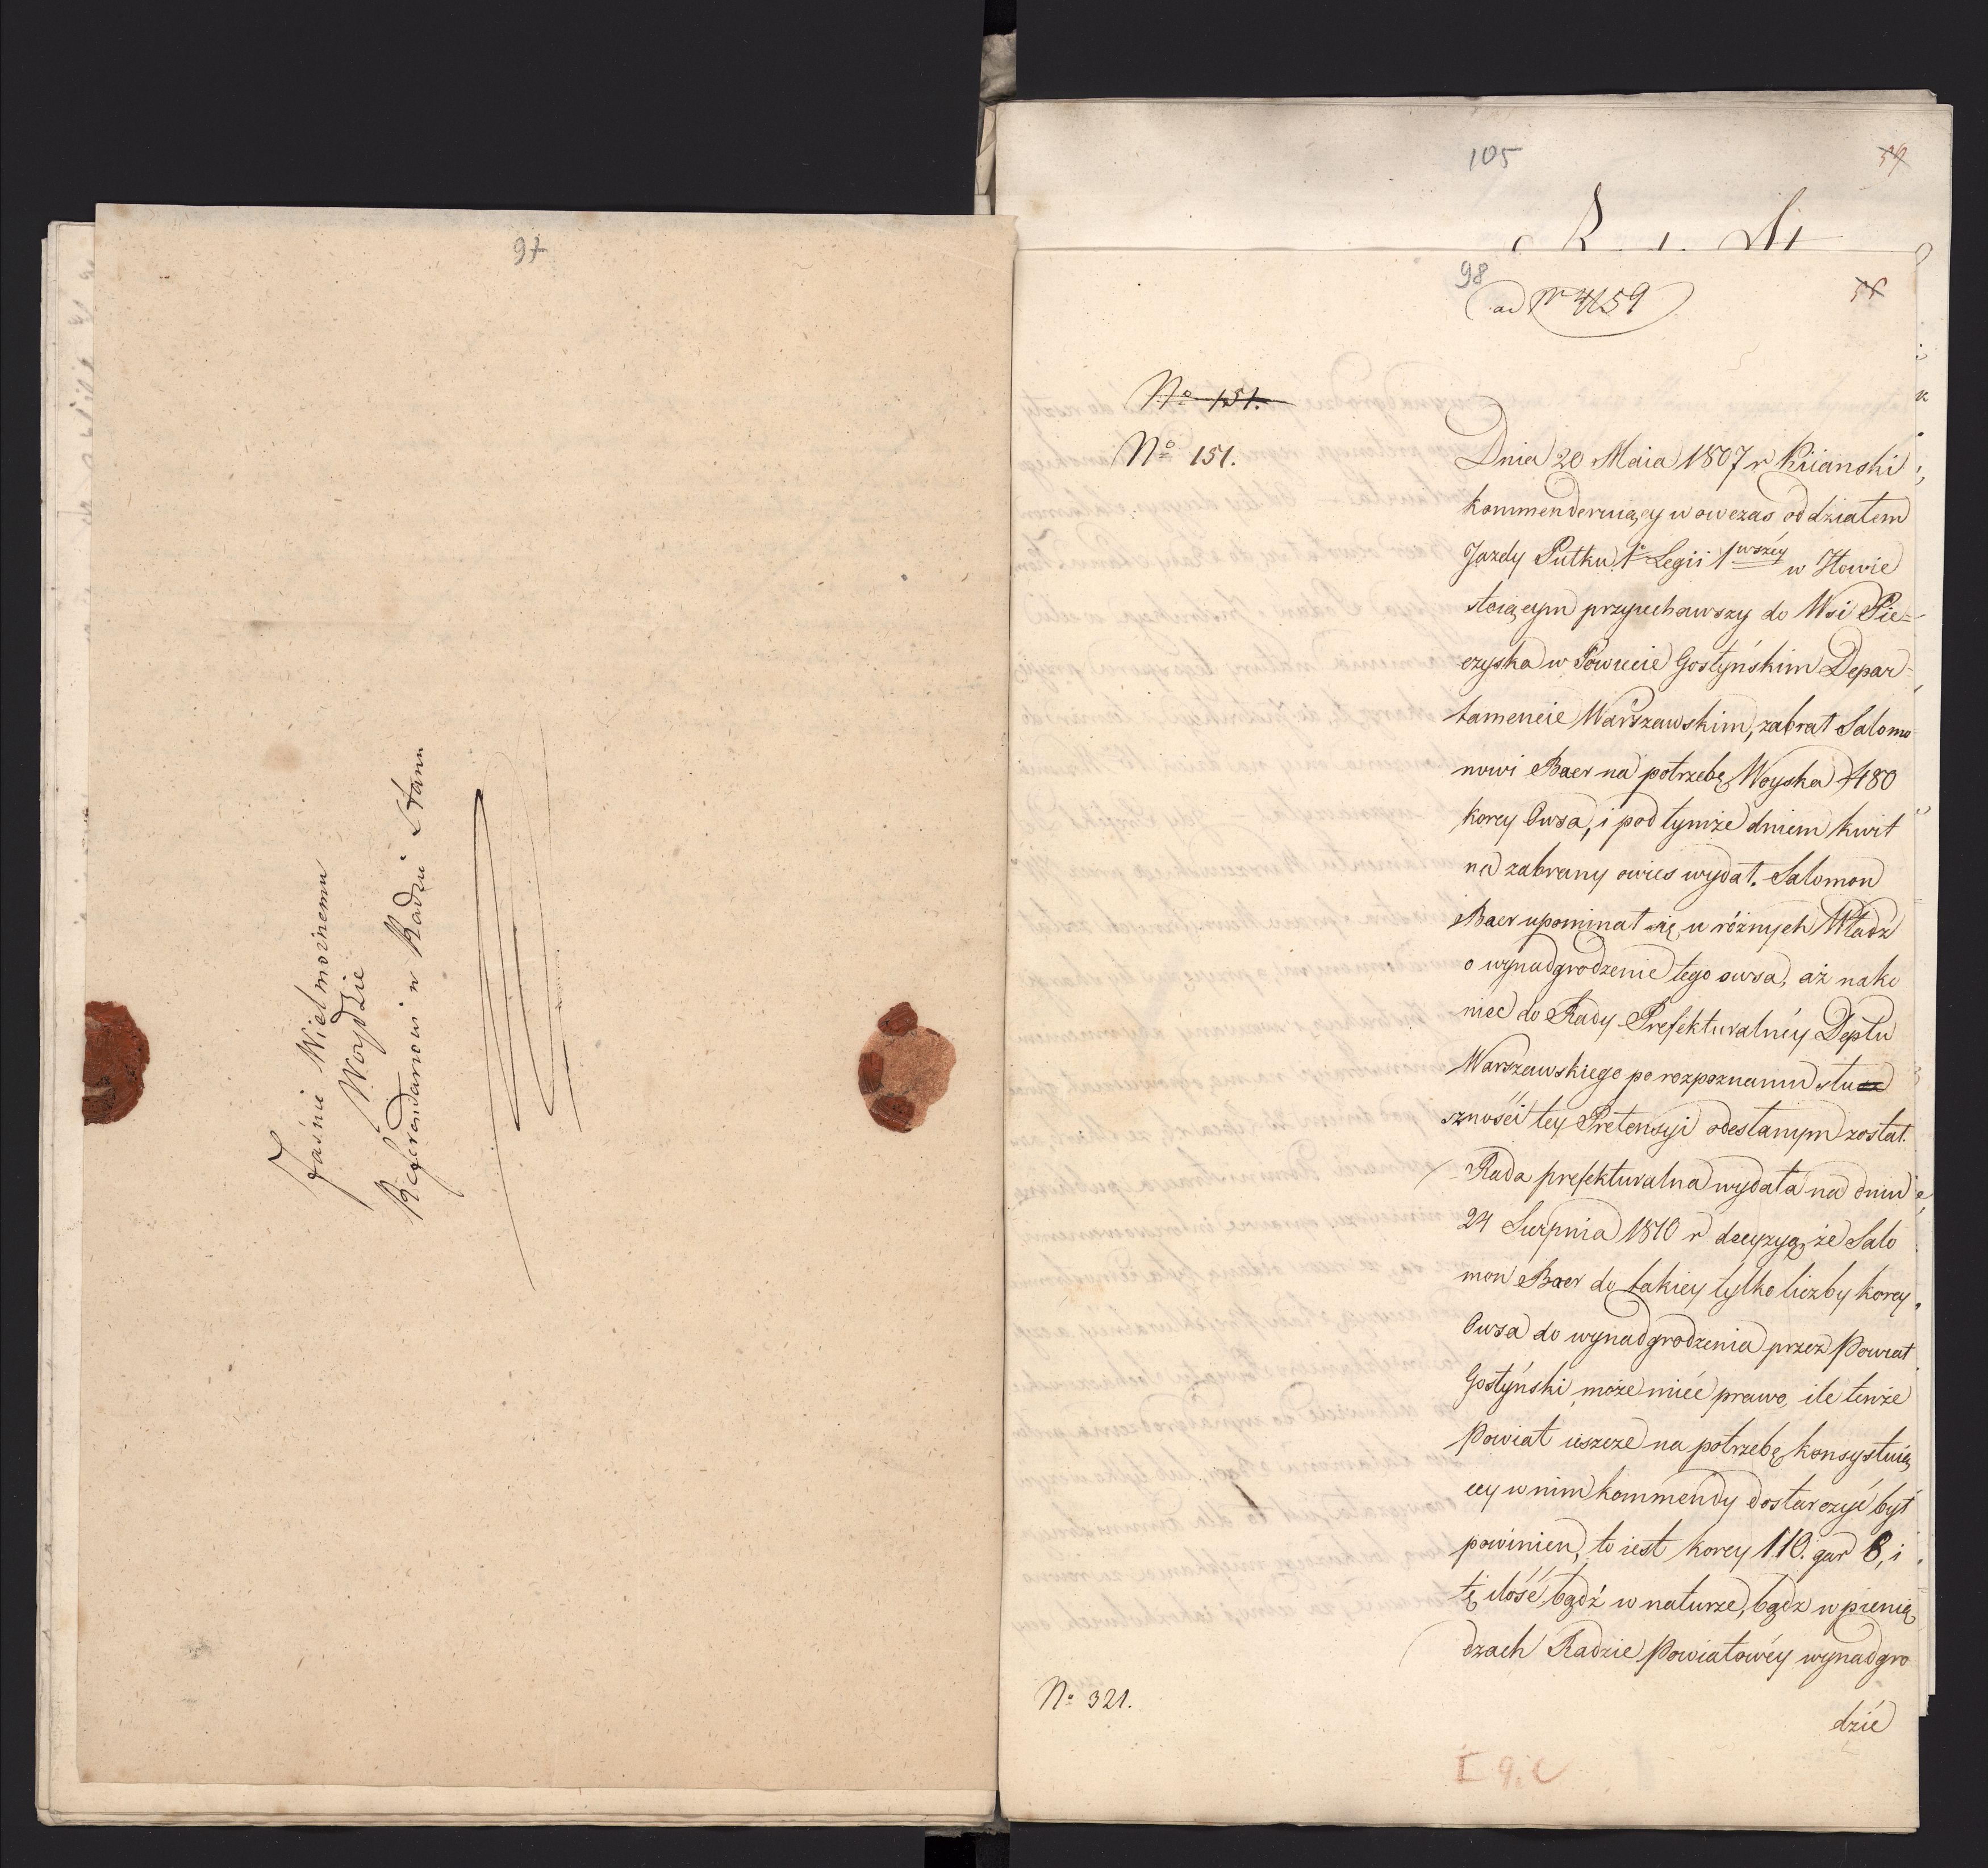 97
Jaśnie Wielmożnemu
Woydzie
Referendarzowi w Radzie Stanu
105
59
98
ad Nr 4159
58
No 151.
No 151.
Dnia 20 Maia 1807 r Kiianski
kommenderuiący w owczas oddziałem
Jazdy Pułku 1o Legii 1wszéy w Iłowie
stoiącym przyiechawszy do Wsi Pie=
czyska w Powiecie Gostyńskim Depar=
tamencie Warszawskim, zabrał Salomo
nowi Baer na potrzebę Woyska 480
korcy Owsa, i pod tymże dniem kwit
na zabrany owies wydał. Salomon
Baer upominał się u różnych Władz
o wynadgrodzenie tego owsa, aż nako
niec do Rady Prefekturalnéy Deptu
Warszawskiego po rozpoznaniu słu
szności tey Pretensyi odesłanym został.
Rada prefekturalna wydała na dniu
24 Sierpnia 1810 r decyzyą, że Salo
mon Baer do takiey tylko liczby korcy
Owsa do wynadgrodzenia przez Powiat
Gostyński może mieć prawo, ile tenże
Powiat ieszcze na potrzebę konsystuią
cey w nim kommendy dostarczyć był
powinien, to iest korcy 110. gar 8, i
tę ilość bądź w naturze, bądz w pienią
dzach Radzie Powiatowéy wynadgro
dzić
No 321.